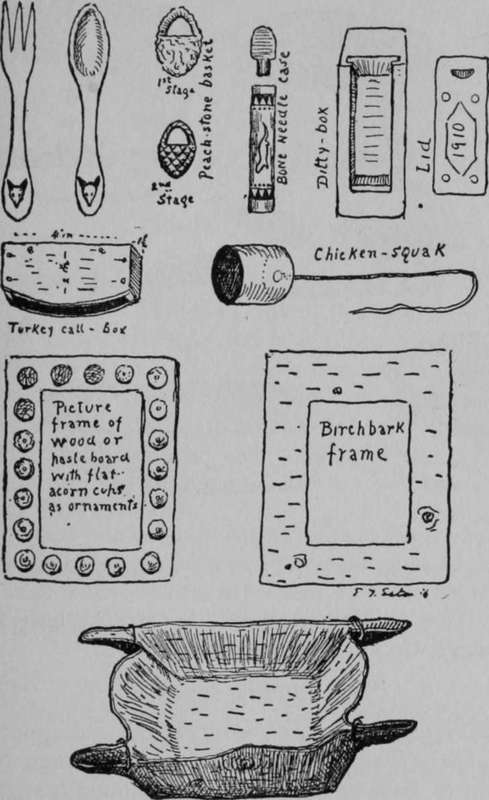 1st
Stage
2nd
Stage
Peach-stone basket
BONE NEEDLE CASE
Ditty-box
Lid
1910
4 in
Turkey call-box
Chicken-squak
Picture
frame of
wood or
pasteboard
with flat
acorn cups
as ornaments
Birchbark
frame